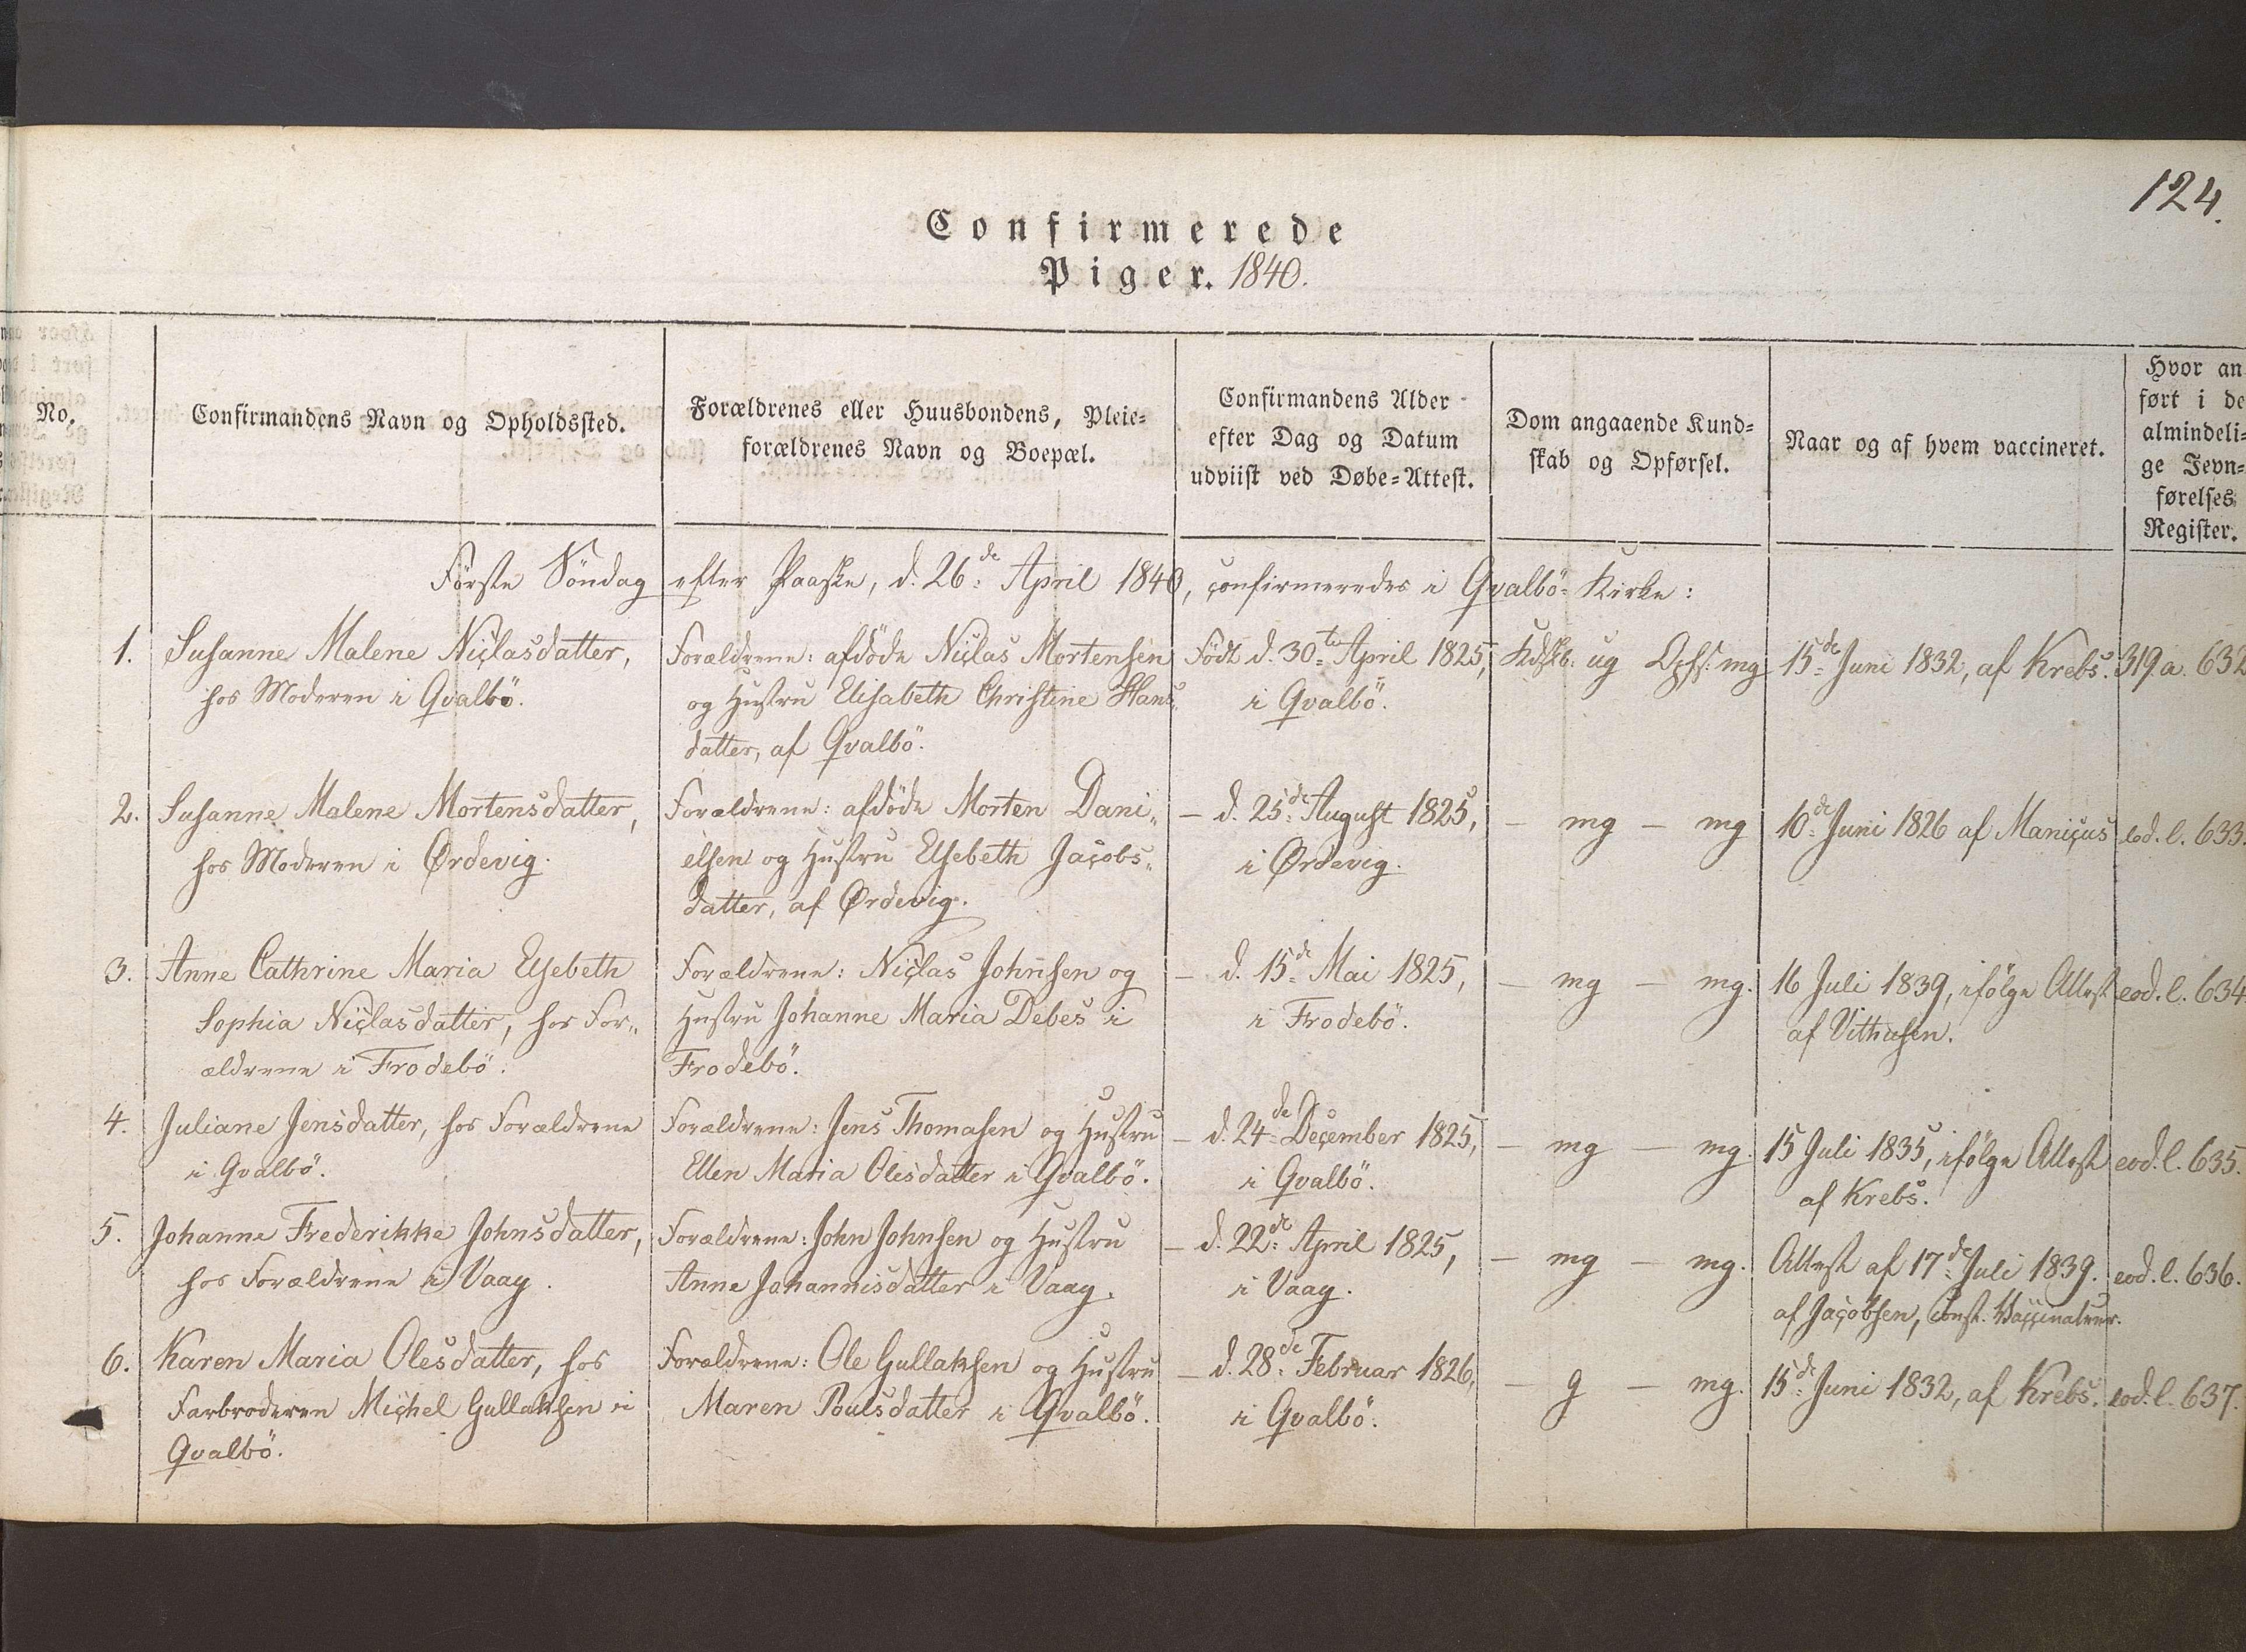 124.
Confirmerede
Piger. 1840.
No.
Confirmandens Navn og Opholdssted.
Forældrenes eller Huusbondens, Pleie-
forældrenes Navn og Boepæl.
Confirmandens Alder
efter Dag og Datum
udviist ved Døbe-Attest.
Dom angaaende Kund-
skab og Opførsel.
Naar og af hvem vaccineret.
Hvor an
ført i de
almindeli-
ge Jevn-
førelses
Register.
Förste Söndag efter Paaske, d. 26de April 1840, confirmeredes i Qvalbö-Kirke:
1.
Susanne Malene Niclasdatter,
hos Moderen i Qvalbö.
Forældrene: afdöde Niclas Mortensen
og Hustru Elisabeth Christine Hans-
datter, af Qvalbö.
Födt d. 30te April 1825,
i Qvalbö.
Kdskb: ug Opfs: mg
15de Juni 1832, af Krebs.
319.a. 632
2.
Susanne Malene Mortensdatter,
hos Moderen i Ördevig.
Forældrene: afdöde Morten Dani-
elsen og Hustru Elsebeth Jacobs-
datter, af Ördevig.
— d. 25de August 1825,
i Ördevig.
— mg — mg
10de Juni 1826 af Manicus
eod. l. 633.
3.
Anne Cathrine Maria Elsebeth
Sophia Niclasdatter, hos For-
ældrene i Frodebö.
Forældrene: Niclas Johnsen og
Hustru Johanne Maria Debes i
Frodebö.
— d. 15de Mai 1825,
i Frodebö.
— mg — mg.
16 Juli 1839, ifölge Attest
af Vithusen.
eod. l. 634
4.
Juliane Jensdatter, hos Forældrene
i Qvalbö.
Forældrene: Jens Thomasen og Hustru
Ellen Maria Olesdatter i Qvalbö.
— d. 24de December 1825,
i Qvalbö.
— mg — mg.
15 Juli 1835, ifölge Attest
af Krebs.
eod. l. 635.
5.
Johanne Frederikke Johnsdatter,
hos Forældrene i Vaag.
Forældrene: John Johnsen og Hustru
Anne Johannisdatter i Vaag.
— d. 22de April 1825,
i Vaag.
— mg — mg.
Attest af 17de Juli 1839.
af Jacobsen, const. Vaccinateur.
eod. l. 636.
6.
Karen Maria Olesdatter, hos
Farbroderen Michel Gullaksen i
Qvalbö.
Forældrene: Ole Gullaksen og Hustru
Maren Poulsdatter i Qvalbö.
— d. 28de Februar 1826,
i Qvalbö.
— g — mg.
15de Juni 1832, af Krebs.
eod. l. 637.